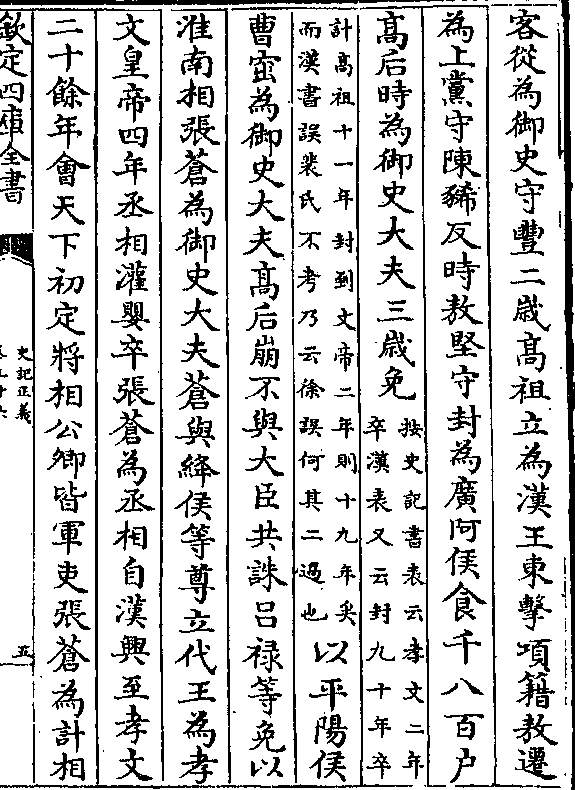 客從為御史守豐二歲高祖立為漢王東擊項籍敖遷
為上黨守陳豨反時敖堅守封為廣阿侯食千八百户
高后時為御史大夫三歲免按史記書表云孝文二年
卒漢表又云封九十年卒
計高祖十一年封到文帝二年則十九年矣
而漢書誤裴氏不考乃云徐誤何其二過也以平陽侯
曹窋為御史大夫高后崩不與大臣共誅吕禄等免以
淮南相張蒼為御史大夫蒼與絳侯等尊立代王為孝
文皇帝四年丞相灌嬰卒張蒼為丞相自漢興至孝文
二十餘年會天下初定將相公卿皆軍吏張蒼為計相
欽定四庫全書
史記正義
卷九十六
五